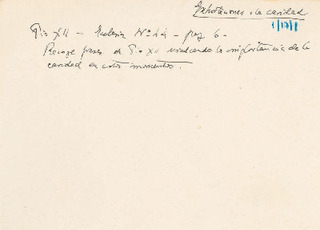 Exhortaciones a la caridad
Pio XII — Ecclesia Nº — pag 6 -
Recoge frases de P. XII resaltando la importancia de la
caridad en estos momentos.